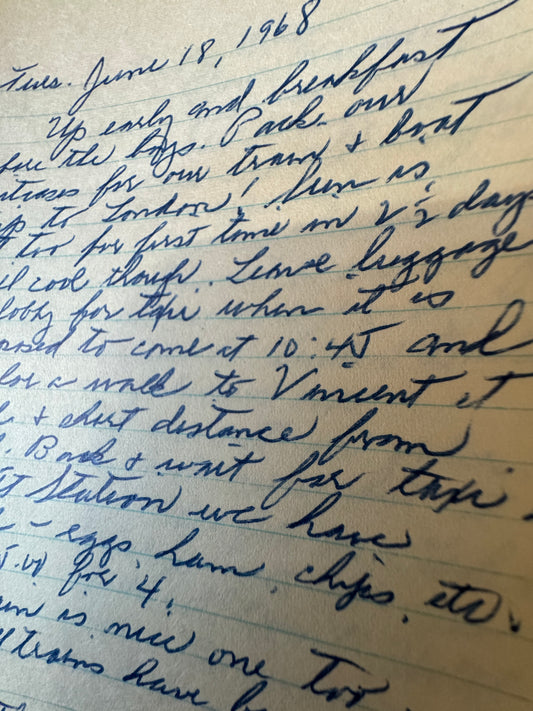 Tues. June 18, 1968
Up early and breakfast
the boys. Pack our
for our train & boat
to London! Sun is
too for first time in 2 ½ days
cool though. Leave luggage
for taxi when it is
to come at 10:45 and
a walk to Vincent st
& short distance from
Back & wait for taxi.
Station we have
- eggs, ham, chips, etc.
for 4.
is nice one too
trains have